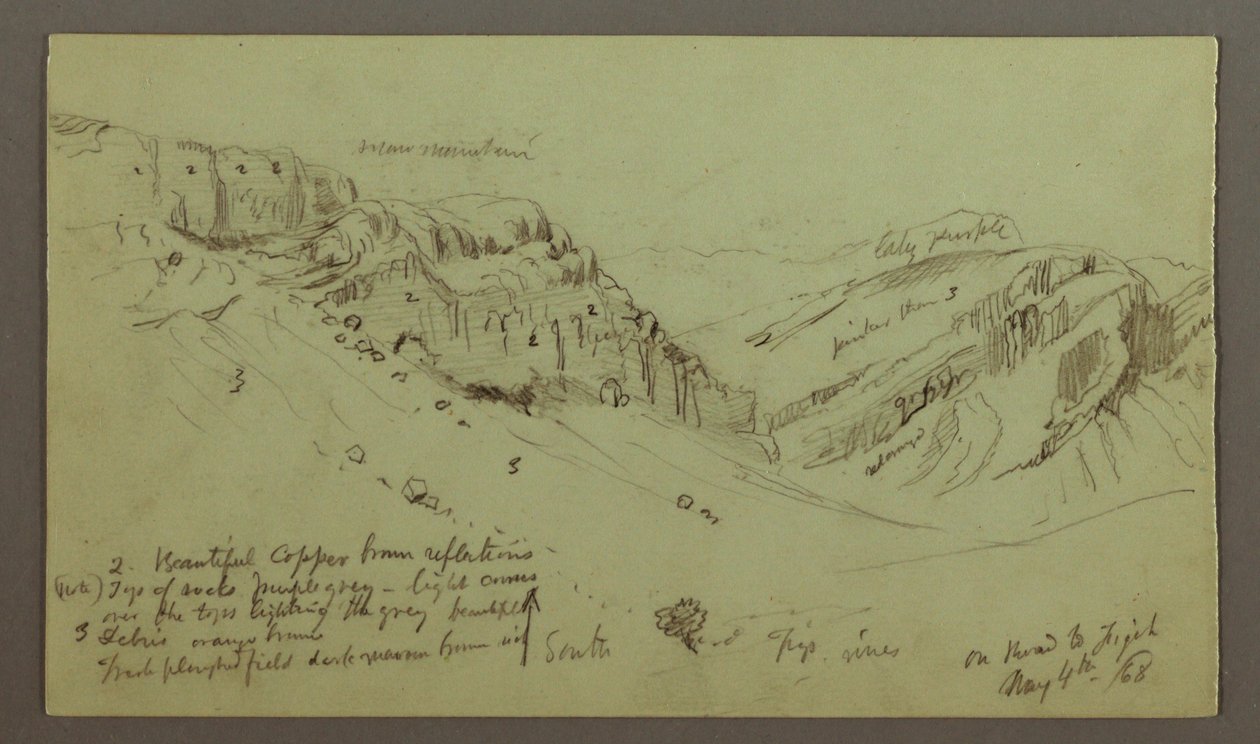 snow mountain
2 2 2 2
laky purple
pinker than 3
2 2 2
3
grey
red orange
3
2. Beautiful Copper brown reflections -
(note) Tops of rocks purple grey - light comes
over the tops lighting the grey beautiful
3 Debris orange brown
Fresh ploughed field dark maroon brown rich
South
Figs. vines
on Road to
May 4th /68